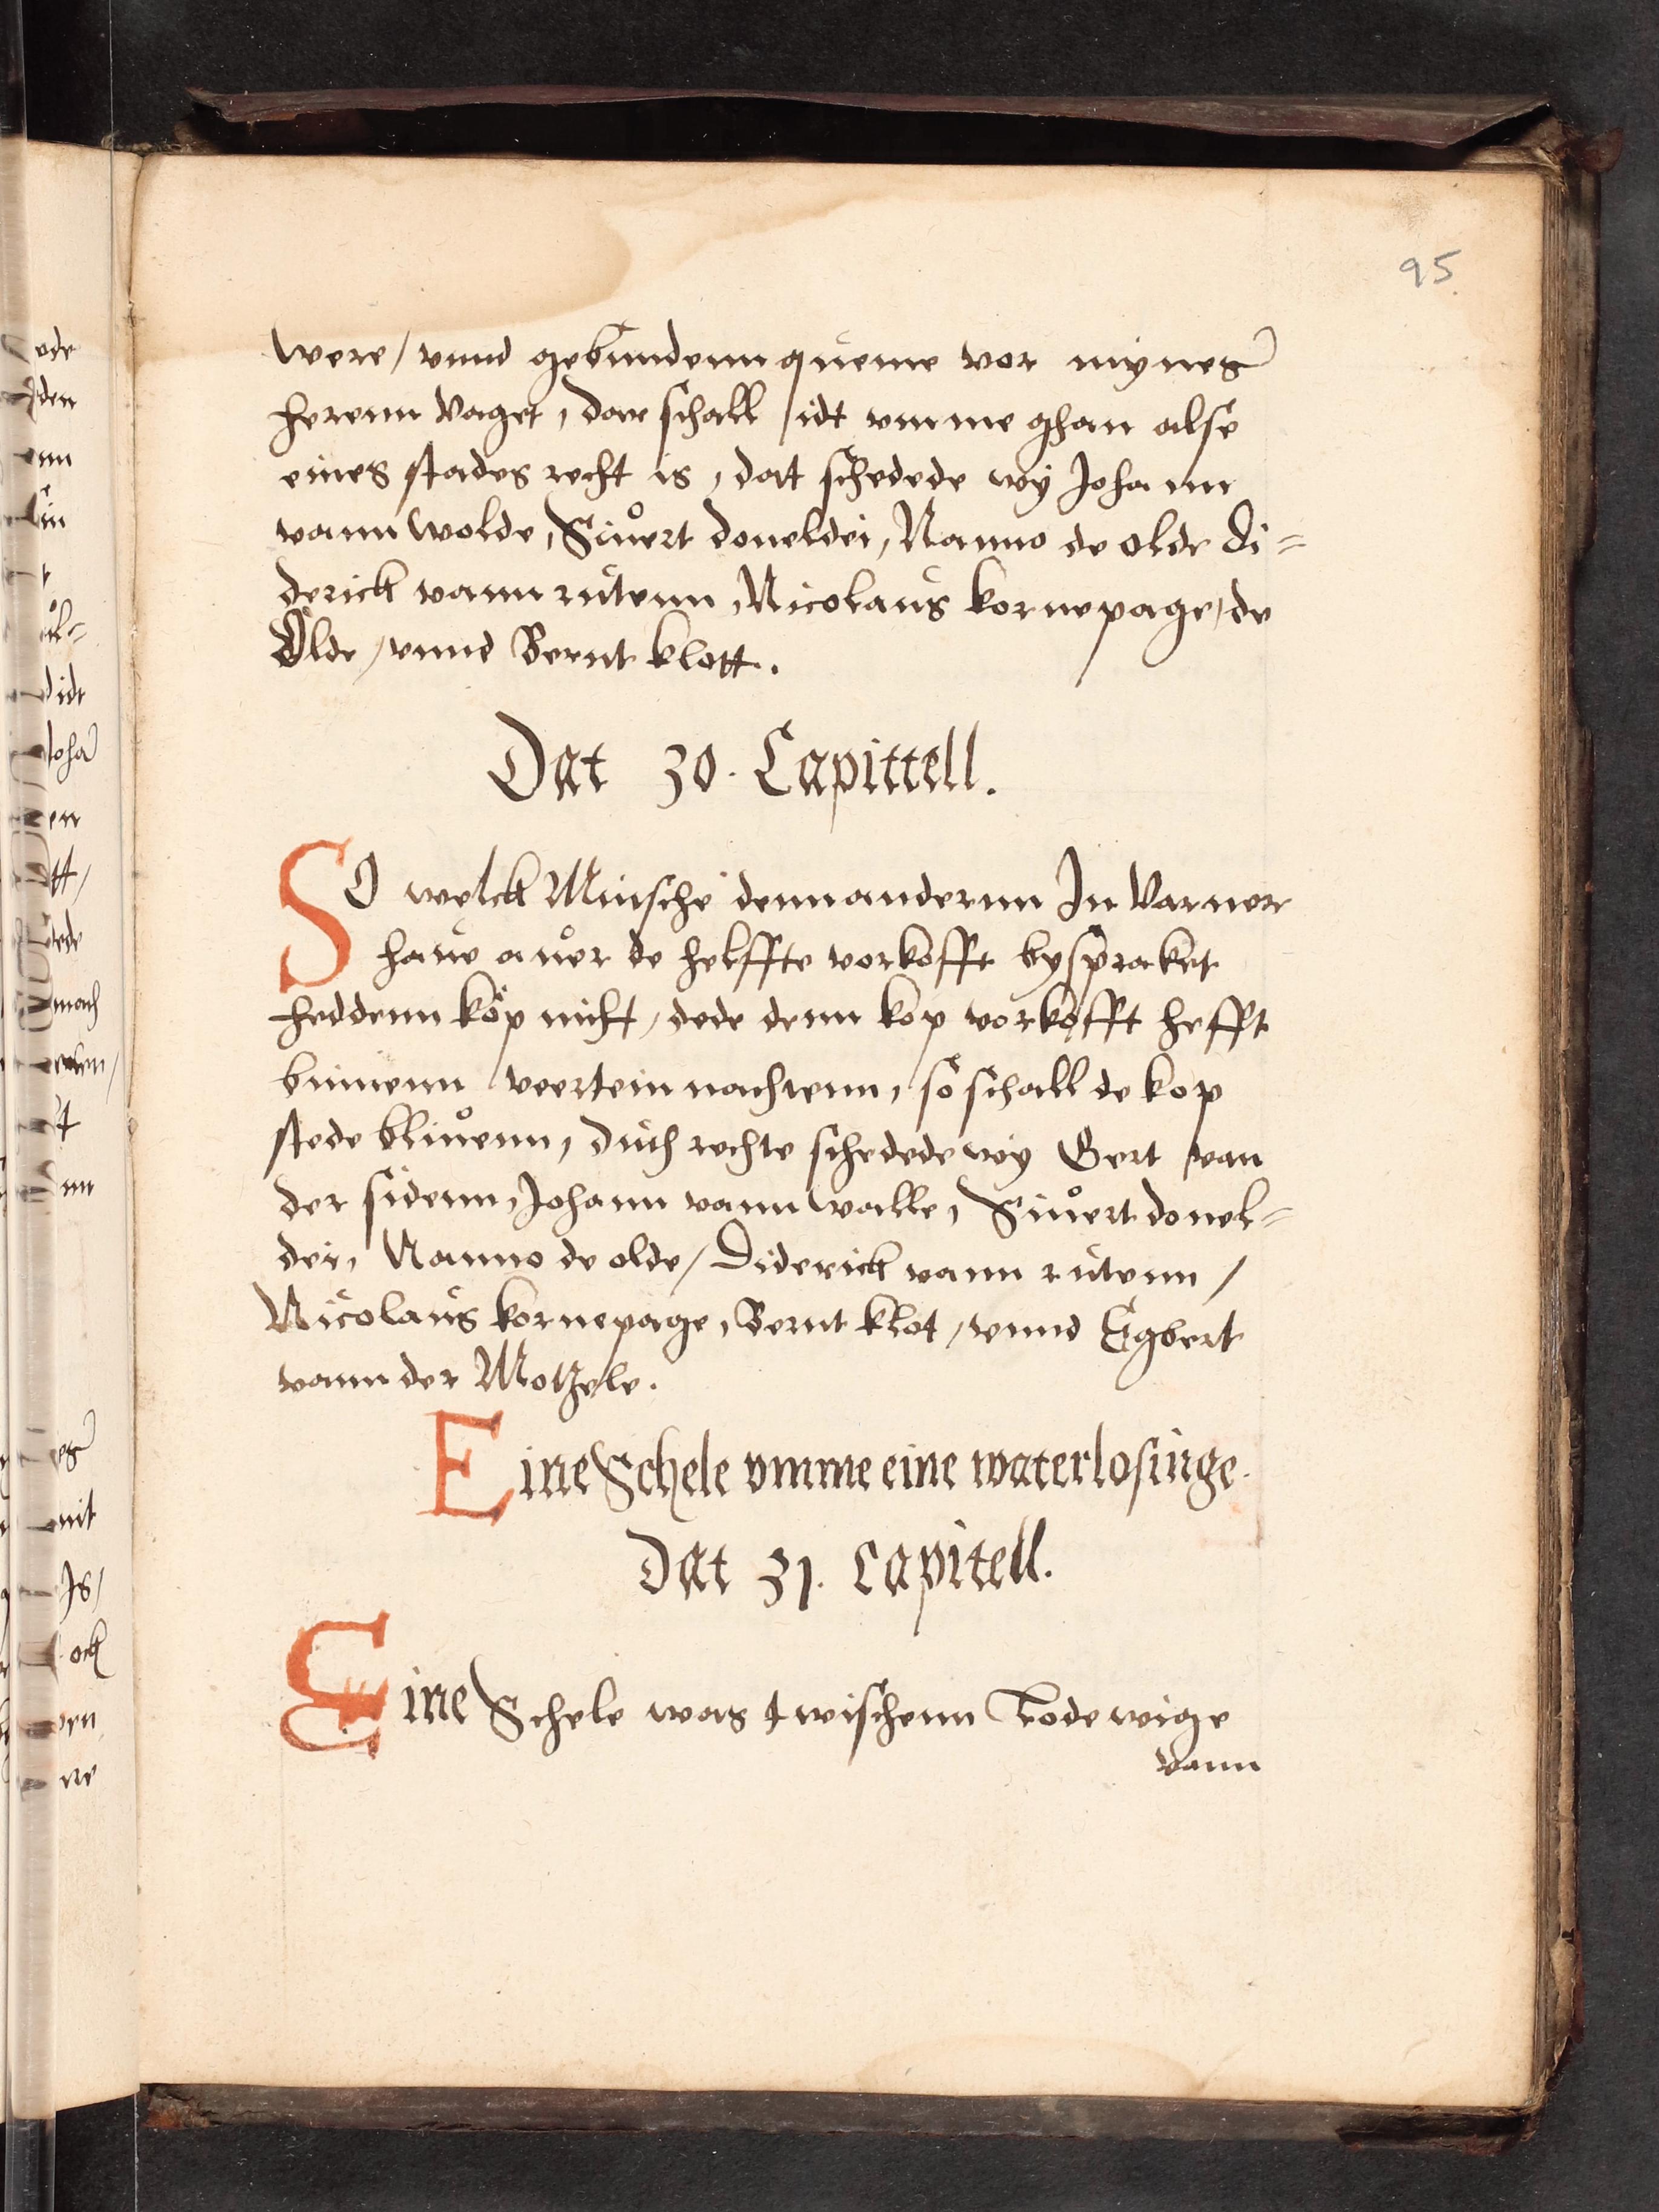 95.
were / vnnd gebundenn queme vor mynes
herenn Vaget, dar schall idt vmme ghan alse
eines stades recht is, dat schedede wy Johann
vann wolde, Siuert doneldei, Nanno de olde di=
derick vann rutenn, Nicolaus kornepage / de
Olde / vnnd Bernt klott.
Dat 30. Capittell.
SO welck Minsche denn andernn In Varner
haue auer de helffte vorkofft byspraket
he denn kop nicht, dede denn kop vorkofft hefft
binnenn veertein nachtenn, so schall de kop
stede bliuenn, duth rechte schedede wy Gert van
der sidenn, Johann vann walle, Siuert donel=
dei, Nanno de olde / Diderick vann rutenn /
Nicolaus kornepage, Bernt klot / vnnd Egbert
vann der Motzele.
Eine Schele vmme eine waterlosinge.
Dat 31. Capitell.
Eine Schele was twischenn Lodewige
vann